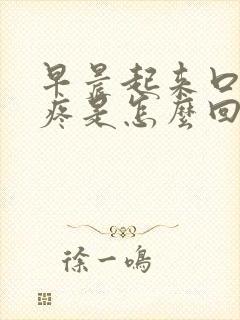 早晨起来口
疼是怎麼回
徐一鳴